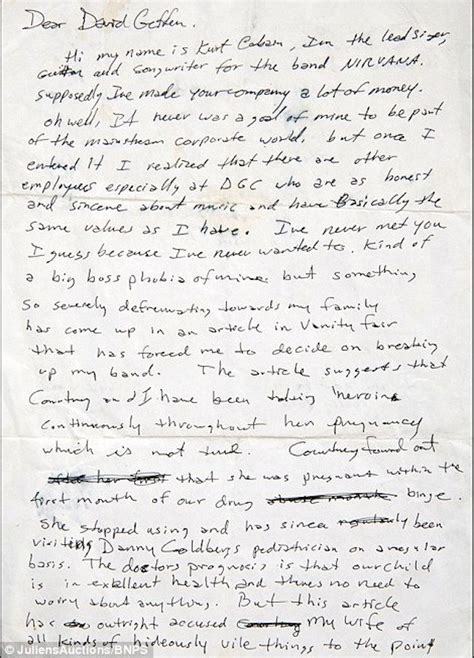 Dear David Geffen,
Hi my name is Kurt Cobain, I'm the lead singer,
Guitar and songwriter for the band NIRVANA.
supposedly I've made your company a lot of money.
oh well, It never was a goal of mine to be part
of the mainstream corporate world. but once I
entered it I realized that there are other
employees especially at DGC who are as honest
and sincere about music and have Basically the
same values as I have. I've never met you
I guess because I've never wanted to. Kind of
a big boss phobia of mine. but something
so severely defreuating towards my family
has come up in an article in Vanity fair
that has forced me to decide on breaking
up my band. The article suggests that
Courtney and I have been taking heroin
continuously throughout her pregnancy
which is not true. Courtney found out
after her first that she was pregnant within the
first month of our drug binge.
She stopped using and has since regularly been
visiting Danny Goldbergs pediatrician on a regular
basis. The doctors prognosis is that our child
is in exellent health and theres no need to
worry about anything. But this article
has outright accused Courtney my wife of
all kinds of hideously vile things to the point
© JuliensAuctions/BNPS